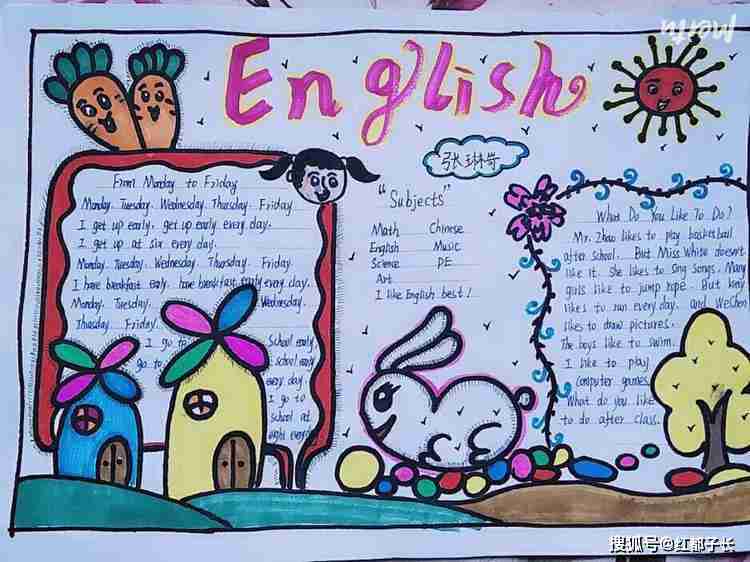 English
张琳
From Monday to Friday
Monday. Tuesday. Wednesday. Thursday. Friday
I get up early. get up early every day.
I get up at six every day.
Monday. Tuesday. Wednesday. Thursday. Friday
I have breakfast early. have breakfast early every day.
Monday. Tuesday. Wednesday.
Thursday. Friday.
I go to school early
go to school early
every day.
I go to
school at
eight every
"Subjects"
Math Chinese
English Music
Science PE
Art
I like English best!
What Do You Like To Do?
Mr. Zhao likes to play basketball
after school. But Miss White doesn't
like it. She likes to sing songs. Many
girls like to jump rope. But
likes to run every day. and
likes to draw pictures.
The boys like to swim.
I like to play
computer games.
What do you like
to do after class.
搜狐号@红都子长